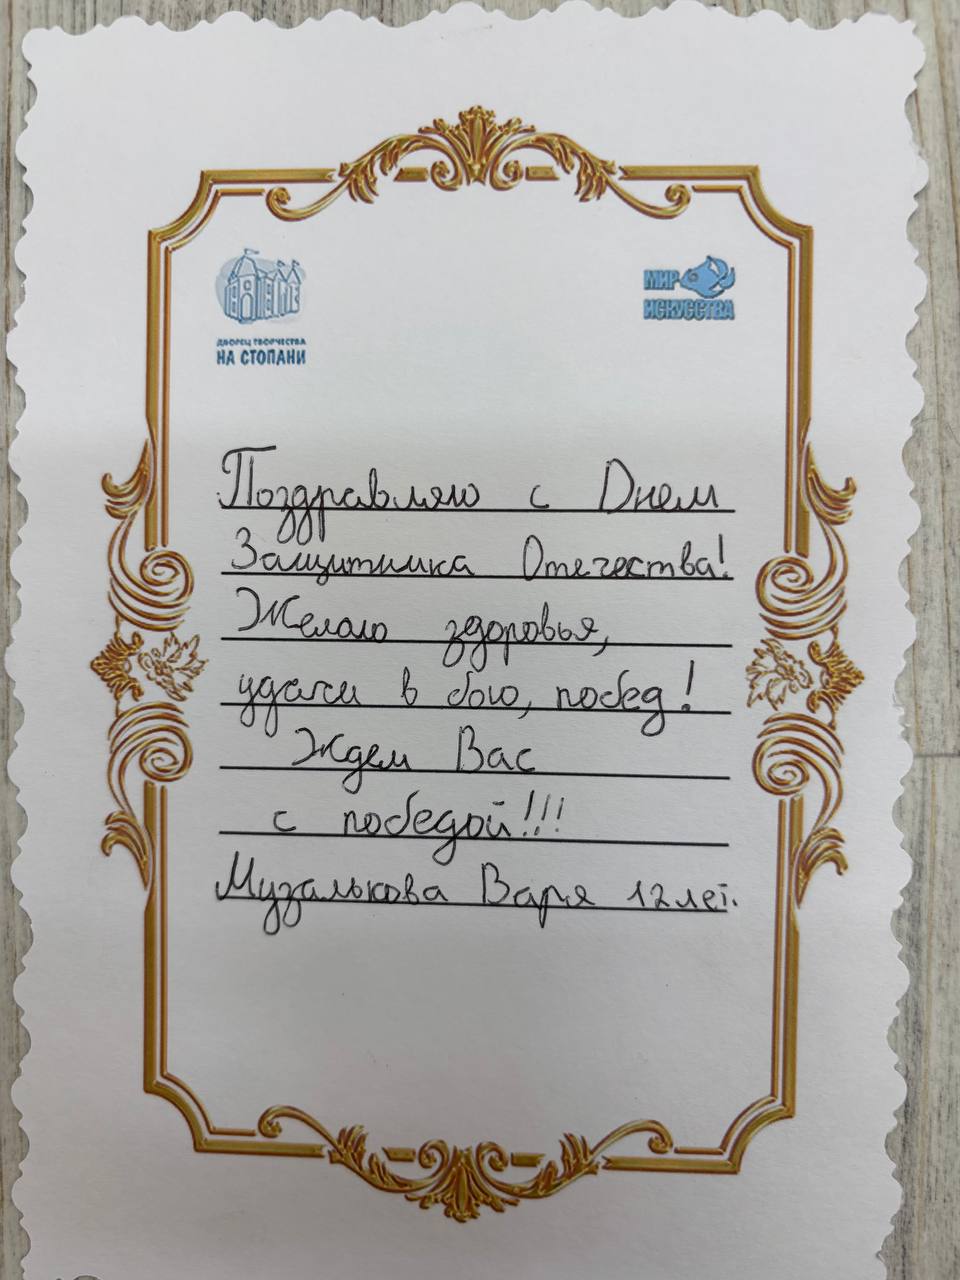 ДВОРЕЦ ТВОРЧЕСТВА
НА СТОПАНИ
МИР
ИСКУССТВА
Поздравляю с Днем
Защитника Отечества!
Желаю здоровья,
удачи в бою, побед!
Ждем Вас
с победой!!!
Музалькова Варя 12 лет.